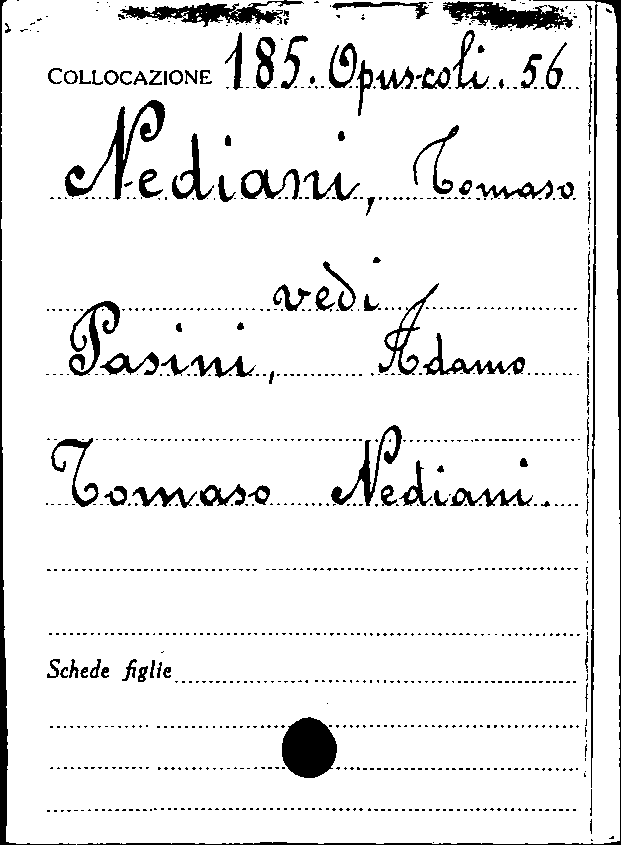 COLLOCAZIONE 185. Opuscoli. 56
Nediani, Tomaso
vedi
Pasini, Adamo
Tomaso Nediani.
Schede figlie